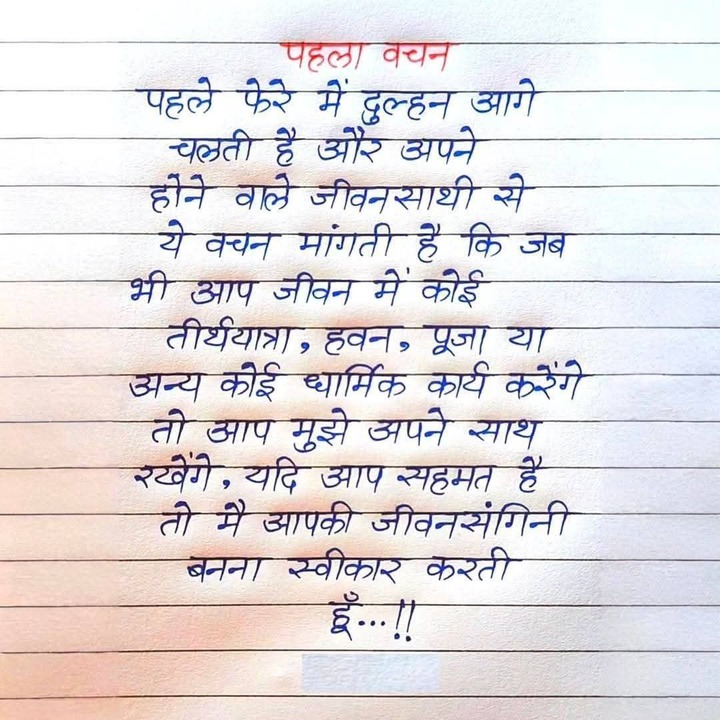 पहला वचन
पहले फेरे में दुल्हन आगे
चलती है और अपने
होने वाले जीवनसाथी से
ये वचन मांगती है कि जब
भी आप जीवन में कोई
तीर्थयात्रा, हवन, पूजा या
अन्य कोई धार्मिक कार्य करेंगे
तो आप मुझे अपने साथ
रखेंगे, यदि आप सहमत है
तो मै आपकी जीवनसंगिनी
बनना स्वीकार करती
हूँ...!!